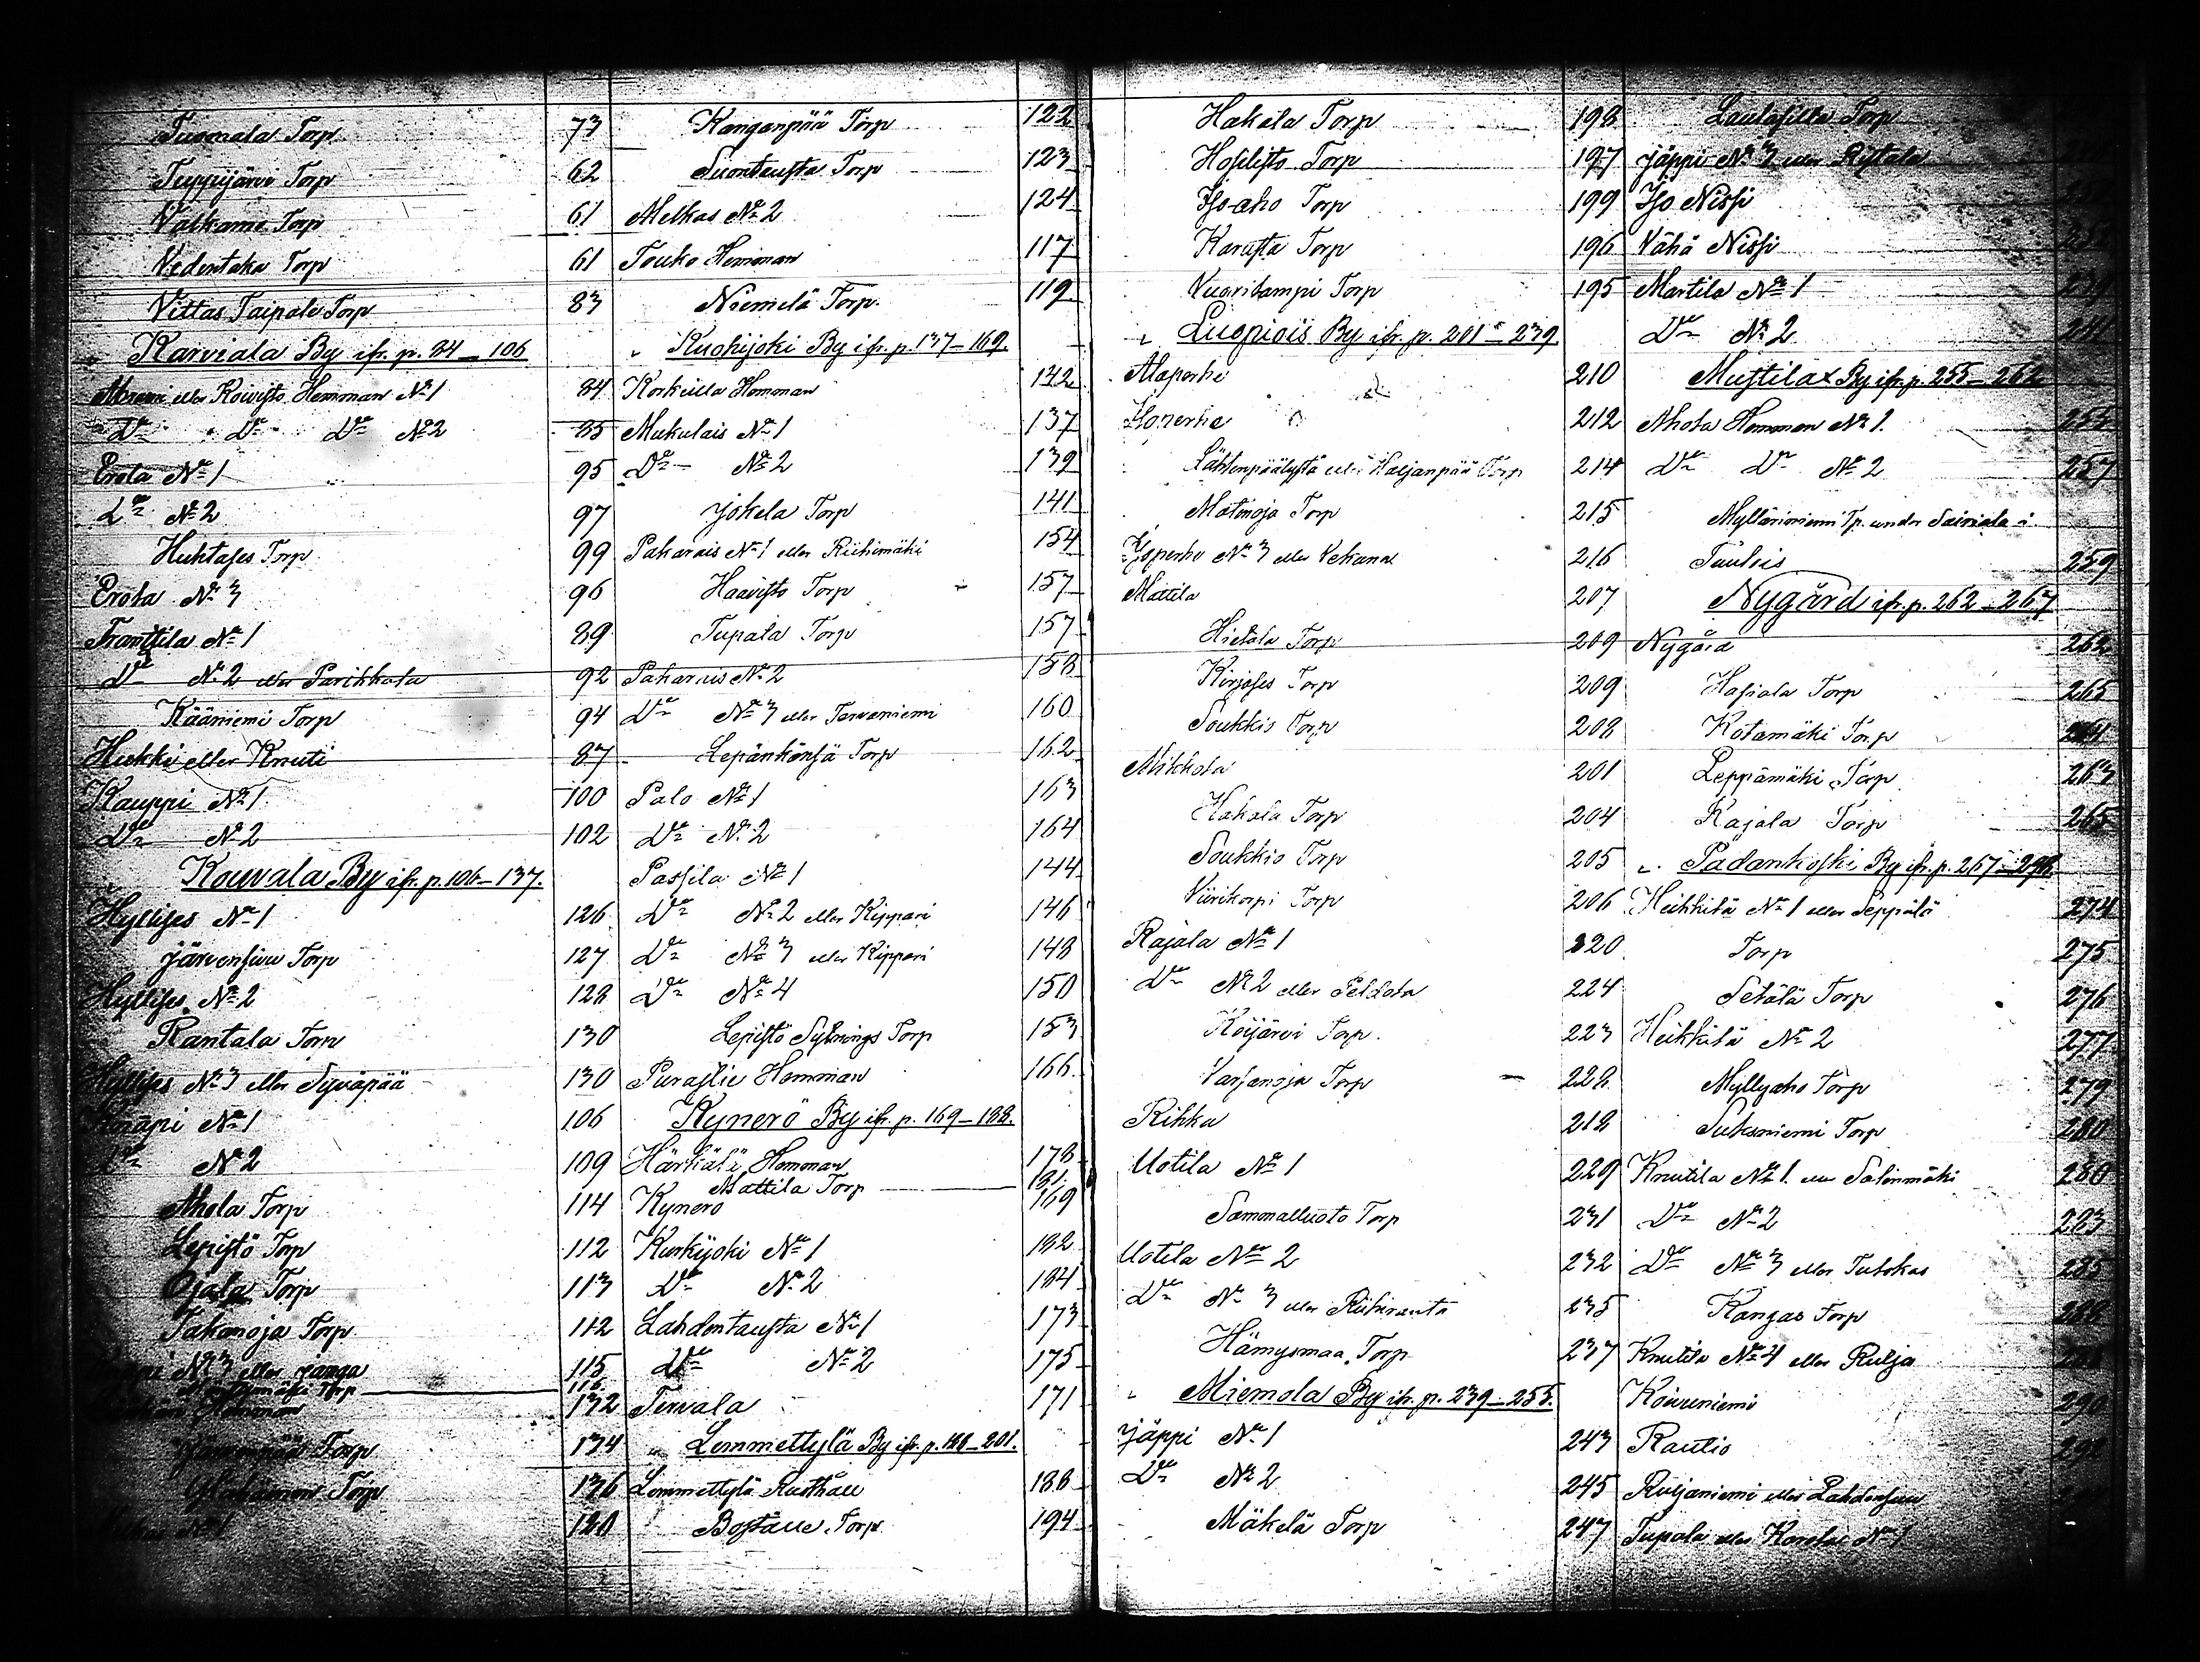 Tuomala Torp 73
Teyyijärvi Torp 62
Valkama Torp 61
Vedentaka Torp 61
Vittas Taipale Torp 83
" Karviala By ifr. p. 84–106
eller Koivisto Hemman No 1 84
Do Do Do No 2 85
Erola No 1 95
Do No 2 97
Huhtases Torp 99
Erola No 3 96
Franttila No 1 89
Do No 2 eller Parikkala 92
Kääniemi Torp 94
Hukki eller Knuti 87
Kauppi No 1 100
Do No 2 102
" Kouvala By ifr. p. 106–137.
Hyllises No 1 126
Järvensuu Torp 127
Hyllises No 2 128
Rantala Torp 130
Hyllises No 3 eller Syväpää 130
No 1 106
Do No 2 109
Ahola Torp 114
Lepistö Torp 112
Ojala Torp 113
Takanoja Torp 112
No 3 eller Janga 115
Torp 116
Hemman 132
Torp 134
Torp 136
No 1 120
Kanganpää Torp 122
Suontausta Torp 123
Melkas No 2 124
Touko Hemman 117
Niemelä Torp 119
" Kuohijoki By ifr. p. 137–169.
Korkeilla Hemman 142
Mukulais No 1 137
Do No 2 139
Jokela Torp 141
Paharais No 1 eller Riihimäki 154
Haavisto Torp 157
Tupala Torp 157
Paharais No 2 158
Do No 3 eller Tervaniemi 160
Lepänkönsä Torp 162
Palo No 1 163
Do No 2 164
Passila No 1 144
Do No 2 eller Kippari 146
Do No 3 eller Kippari 148
Do No 4 150
Lepistö Sytnings Torp 153
Purastie Hemman 166
Kynerö By ifr. p. 169–188.
Härkälä Hemman 178
Mattila Torp 181
Kynerö 169
Kurkijoki No 1 182
Do No 2 184
Lahdentausta No 1 173
Do No 2 175
Tervala 171
" Lemmettylä By ifr. p. 188–201.
Lemmettylä Rusthåll 188
Boställe Torp 194
Hakala Torp 198
Hoslisto Torp 197
Iso-aho Torp 199
Karusta Torp 196
Vuorilampi Torp 195
" Luopiois By ifr. p. 201–239
Alaperhe 210
Isoperhe 212
Lähteenpäälystä eller Haljanpää Torp 214
Matinoja Torp 215
Isoperhe No 3 eller Vekana 216
Mattila 207
Hietala Torp 209
Kirjases Torp 209
Soukkis Torp 208
Mikkola 201
Hakala Torp 204
Soukkio Torp 205
Viirikorpi Torp 206
Rajala No 1 220
Do No 2 eller Peldola 224
Koijärvi Torp 223
Varjanoja Torp 228
Rihka 218
Uotila No 1 229
Sammalluoto Torp 231
Uotila No 2 232
Do No 3 eller Riihiranta 235
Hämysmaa Torp 237
" Miemola By ifr. p. 239–255.
Jäppi No 1 243
Do No 2 245
Mäkelä Torp 247
Laulasilla Torp
Jäppi No 3 eller Ristala
Iso Nissi
Vähä Nissi
Martila No 1 239
Do No 2 241
Mustila By ifr. p. 255–262
Ahola Hemman No 1. 255
Do Do No 2 257
Mylläriniemi Tp. under Sairiala i
Tuulois 259
Nygård ifr. p. 262–267
Nygård 262
Hasiala Torp 265
Kotamäki Torp 264
Leppämäki Torp 263
Rajala Torp 265
" Padankoski By ifr. p. 267–298.
Heikkilä No 1 eller Seppälä 274
Torp 275
Setälä Torp 276
Heikkilä No 2 277
Myllyaho Torp 279
Suksniemi Torp 280
Knutila No 1. eller Salinmäki 280
Do No 2 283
Do No 3 eller Tutokas 285
Kangas Torp 288
Knutila No 4 eller Rulja
Koivuniemi 290
Rautio 292
Ruljaniemi eller Lahdensuu
Tupala eller Korolas No 1